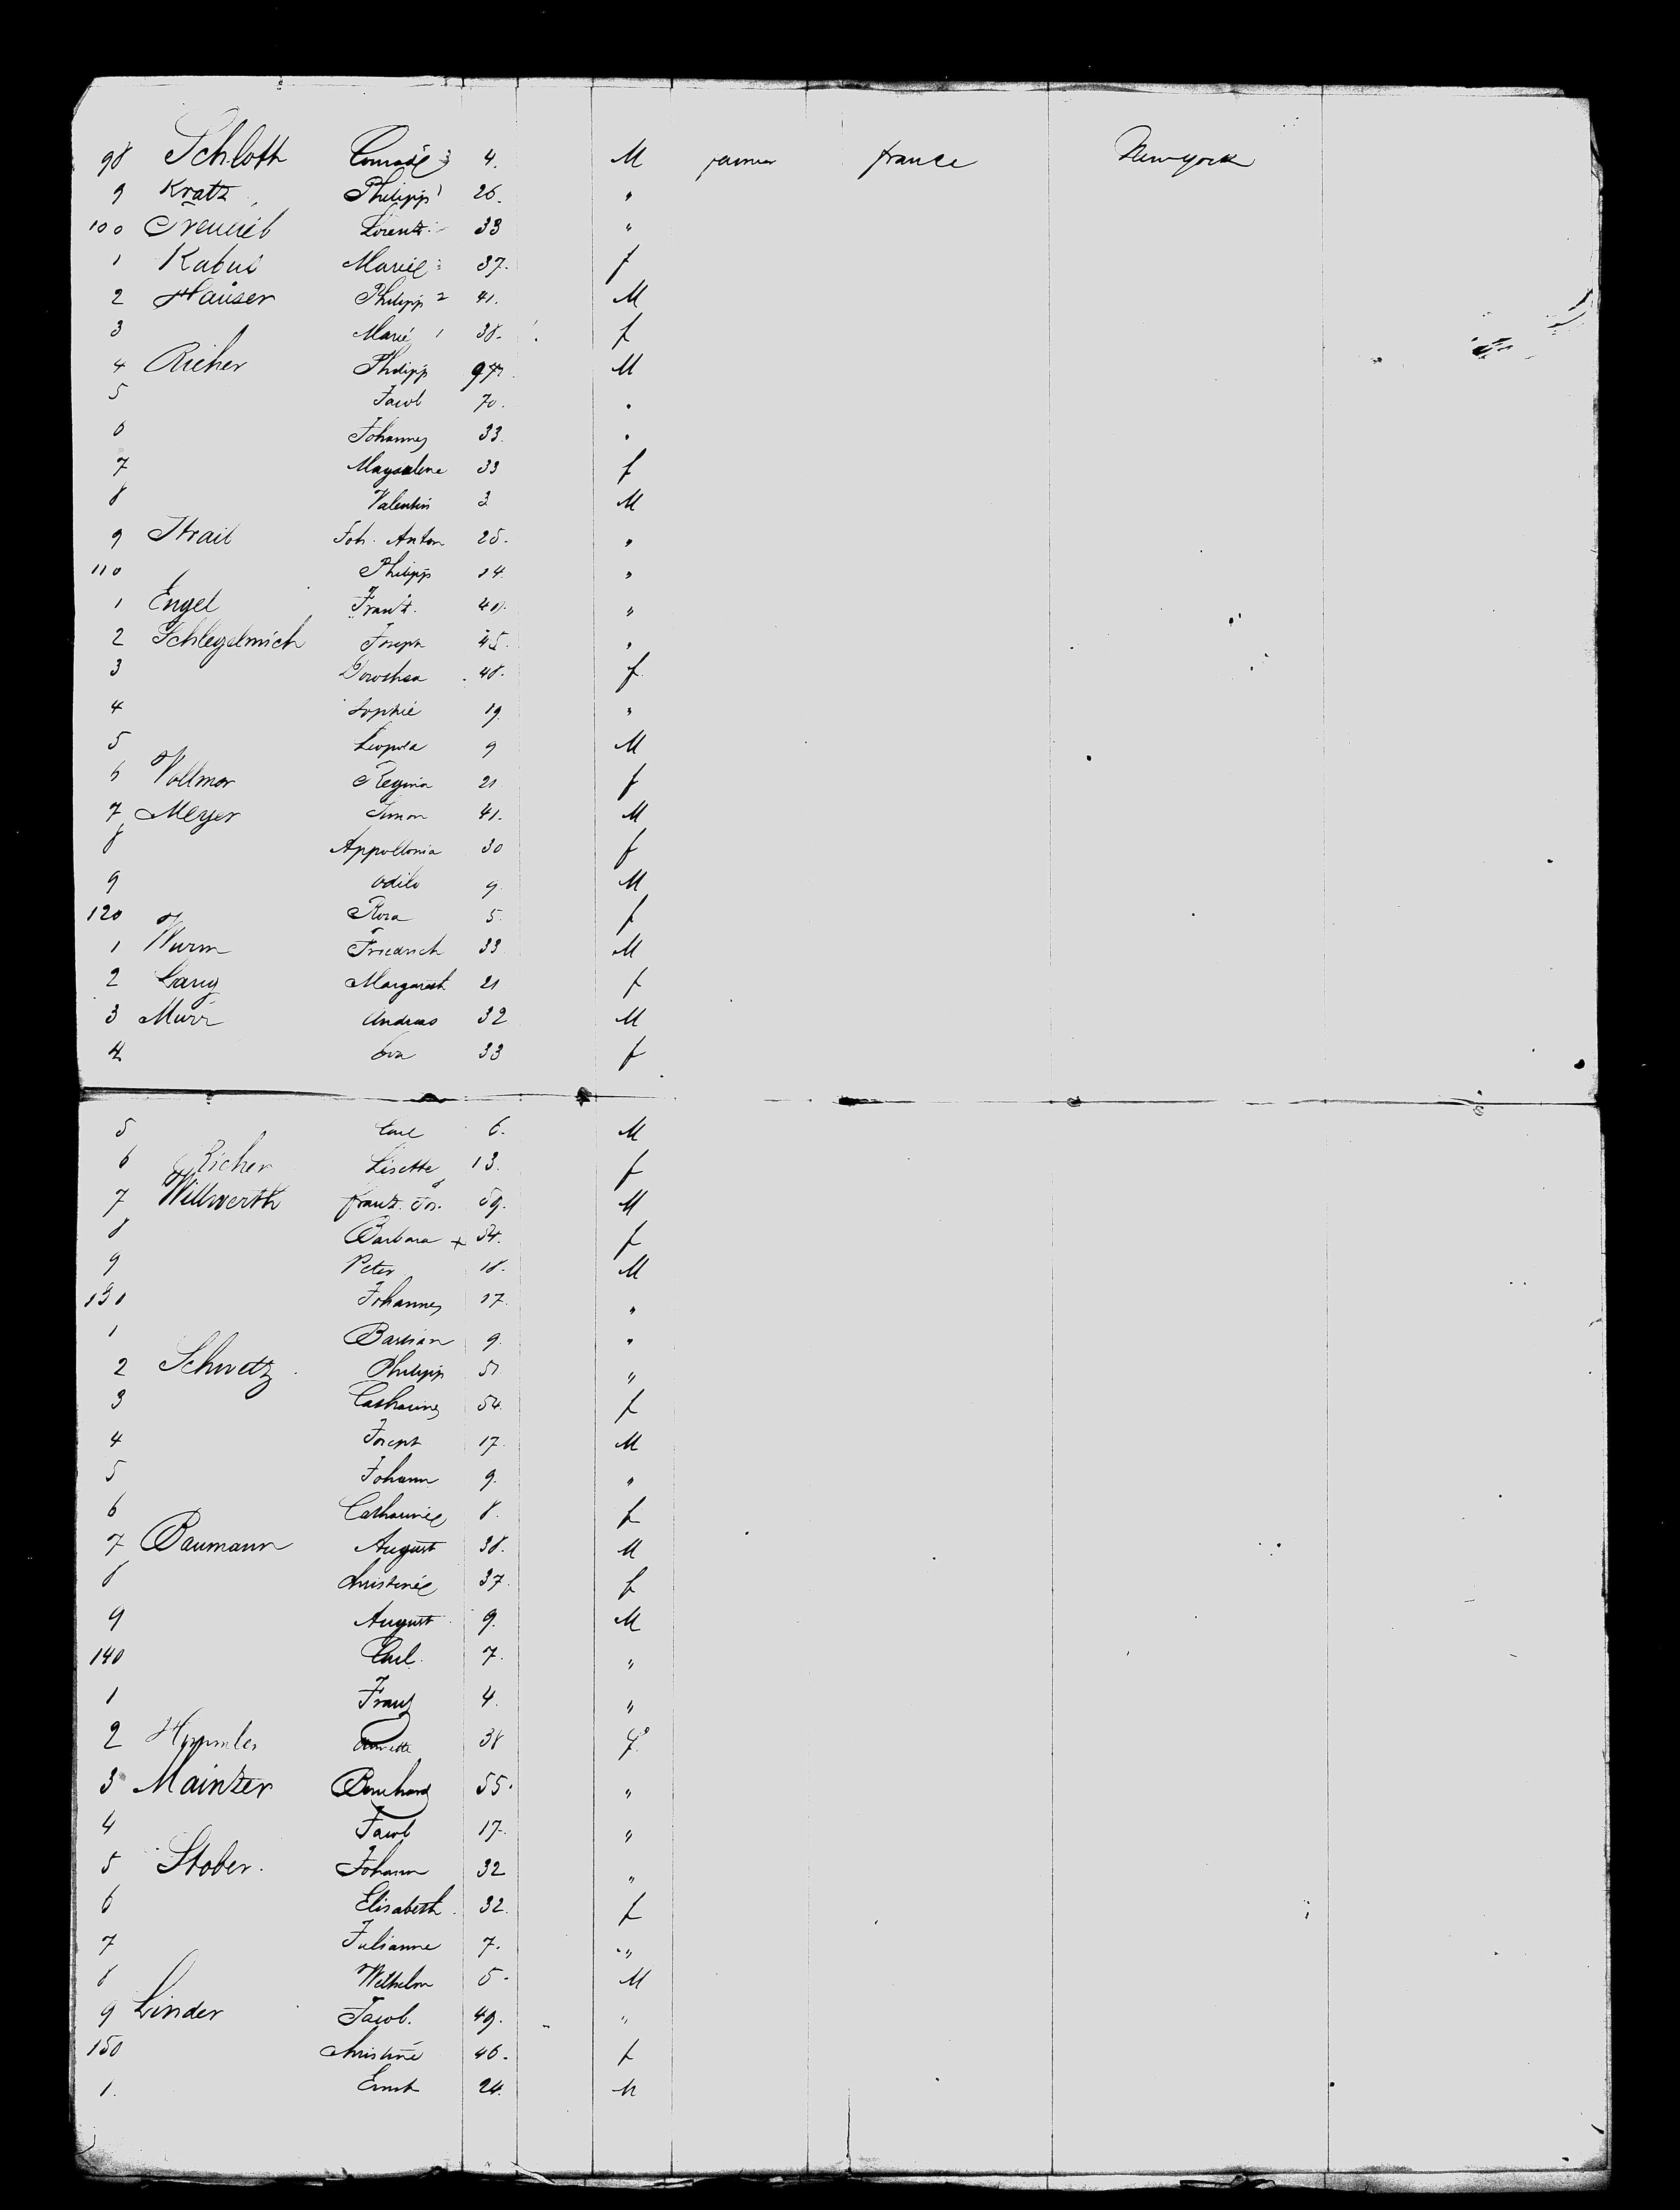 98 Schloth Conrad 4. M farmer france Newyork
9 Kratz Philipp 26. "
100 Lorentz 33 "
1 Kabus Marie 37. f
2 Hauser Philipp 2 41. M
3 Marie 1 38. f
4 Richer Philipp M
5 Jacob 70. "
6 Johannes 33. "
7 Magdalene 33 f
8 Valentin 3 M
9 Strail Joh. Anton 25. "
110 Philipp 24. "
1 Engel Frantz. "
2 Schlegelmich Joseph 45. "
3 Dorothea 48. f
4 Sophie 19. "
5 Leopold 9 M
6 Vollmer Regina 21 f
7 Meyer Simon 41. M
8 Appollonia 30 f
9 Odilo 9. M
120 Rosa 5. f
1 Wurm Friedrich 33 M
2 Lang Margareth 21 f
3 Murr Andreas 32 M
4 Eva 33 f
5 Carl 6. M
6 Richer Lisette 13. f
7 Willwerth frantz. Jos. 59. M
8 Barbara + 54. f
9 Peter 18. M
131 Johannes 17. "
1 Bastian 9. "
2 Schwetz Philipp 51 "
3 Catharine 54. f
4 Joseph 17. M
5 Johann 9. "
6 Catharine 8. f
7 Baumann August 38. M
8 Christine 37. f
9 August 9. M
140 Carl. 7. "
1 Franz 4. "
2 38 f
3 Mainzer Bernhard 55. "
4 Jacob 17. "
5 Stober. Johann 32 "
6 Elisabeth. 32. f
7 Julianne 7. "
8 Wilhelm 5. M
9 Linder Jacob. 49. "
150 Christine 46. f
1. Ernst 24. M